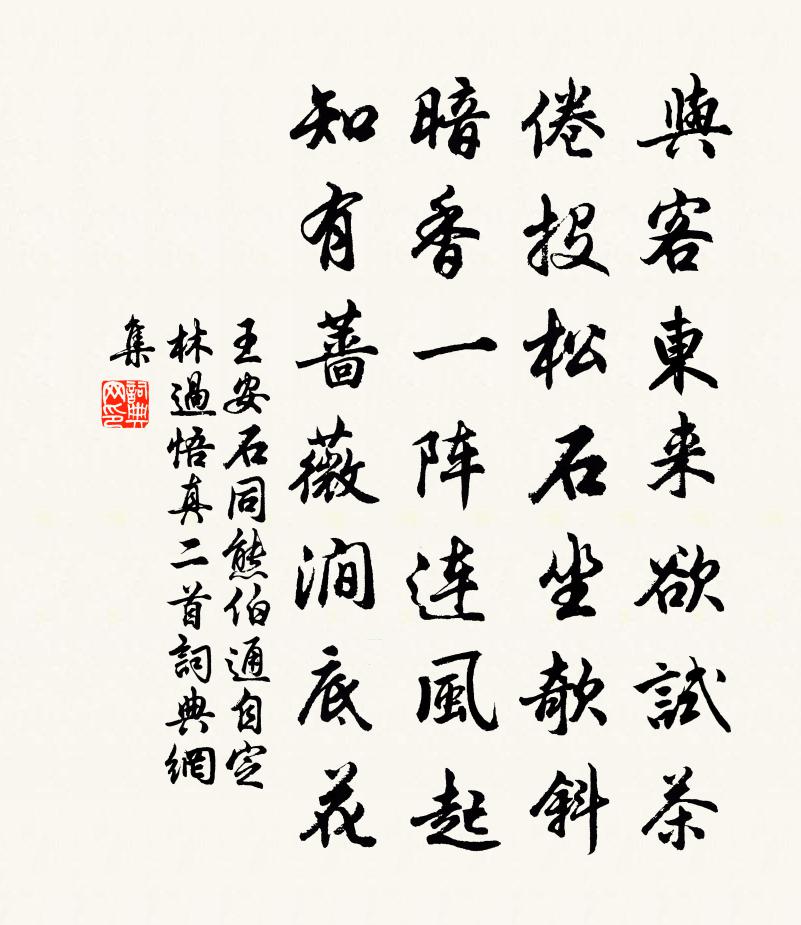 與客東来欲試茶
倦投松石坐欹斜
暗香一阵連風起
知有薔薇澗底花
王安石同熊伯通自定
林過悟真二首詞典網
集
詞典
网印